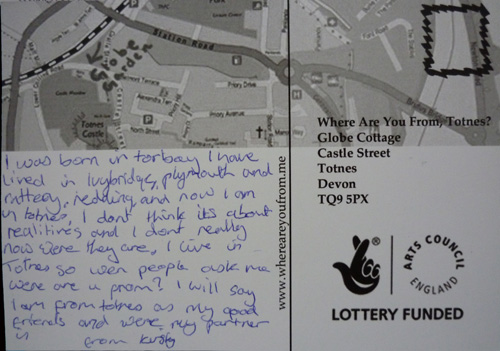 Station Road
Globe
Garden
Totnes
Castle
North St
Priory Drive
Priory Avenue
I was born in torbay I have
lived in Ivybridge, plymouth and
rattery, redding and now I am
in totnes, I dont think its about
realitines and I dont really
now were they are, I live in
Totnes so wen people ask me
were are u from? I will say
I am from totnes as my good
friends and were my partner
is from
www.whereareyoufrom.me
Where Are You From, Totnes?
Globe Cottage
Castle Street
Totnes
Devon
TQ9 5PX
ARTS COUNCIL
ENGLAND
LOTTERY FUNDED